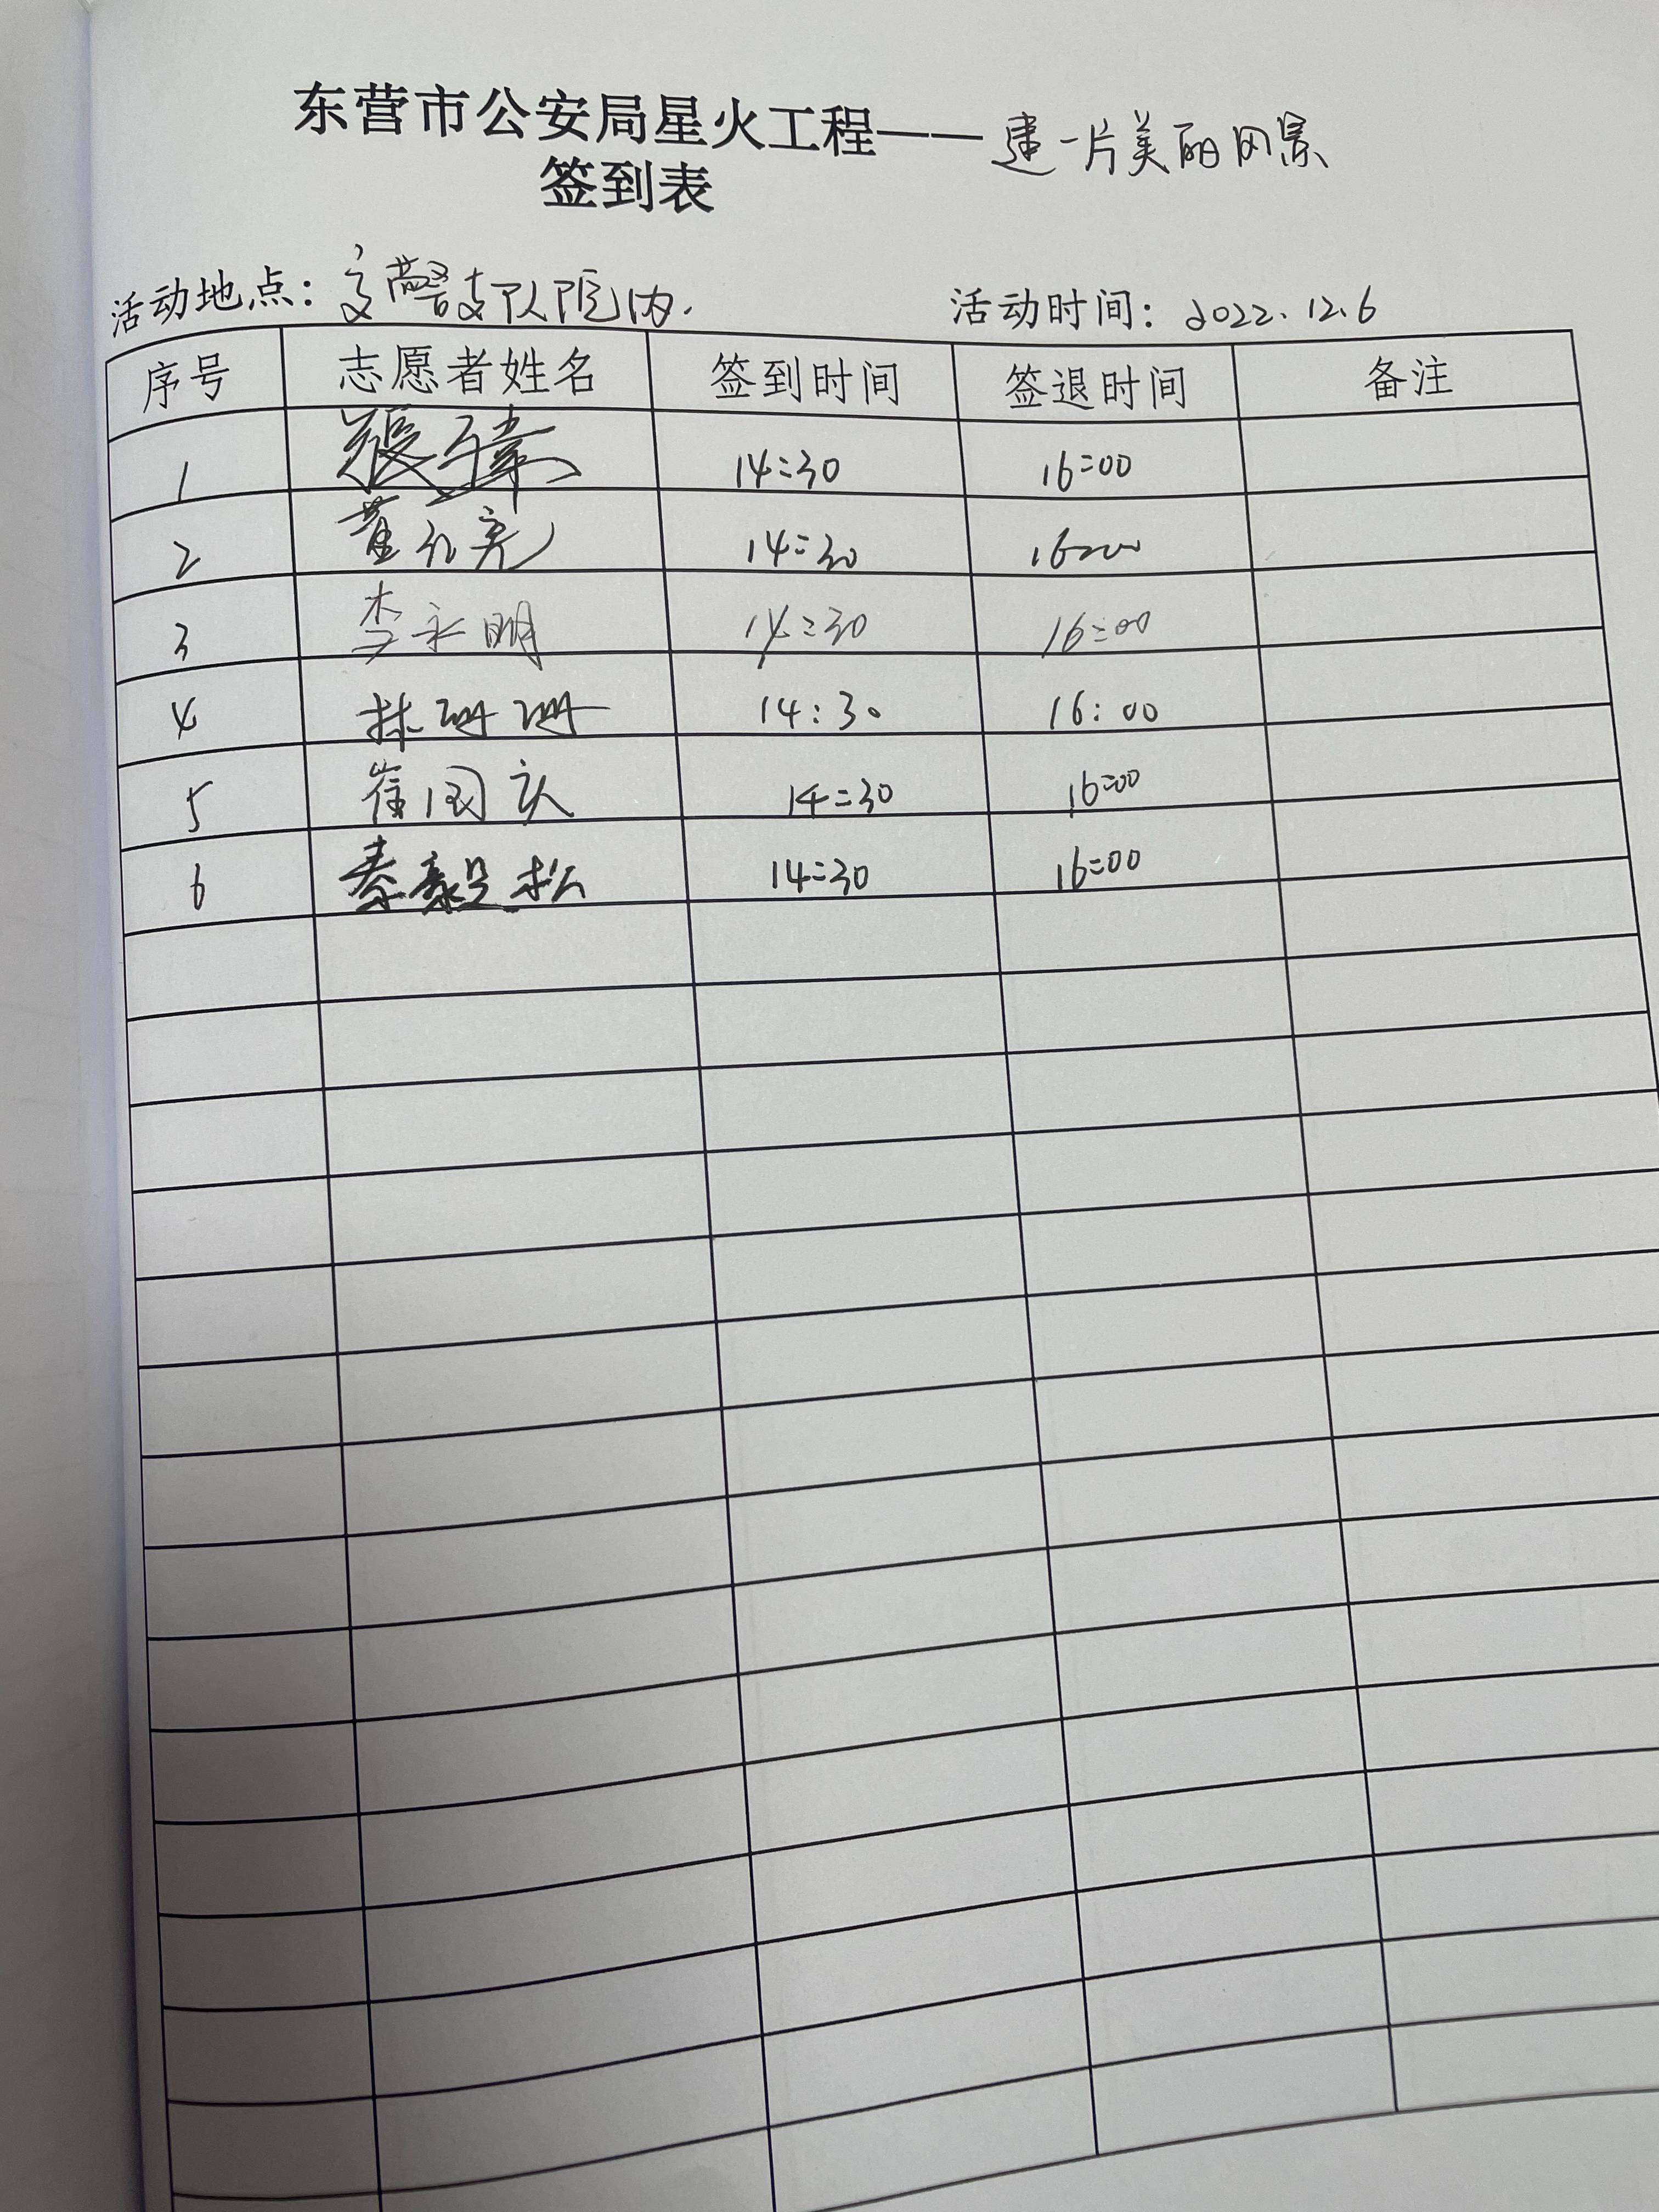 东营市公安局星火工程——建一片美丽风景
签到表
活动地点：交警支队院内. 活动时间：2022.12.6
序号 志愿者姓名 签到时间 签退时间 备注
1 14:30 16:00
2 14:30 16:00
3 李永明 14:30 16:00
4 林珊珊 14:30 16:00
5 崔国庆 14:30 16:00
6 秦毅松 14:30 16:00